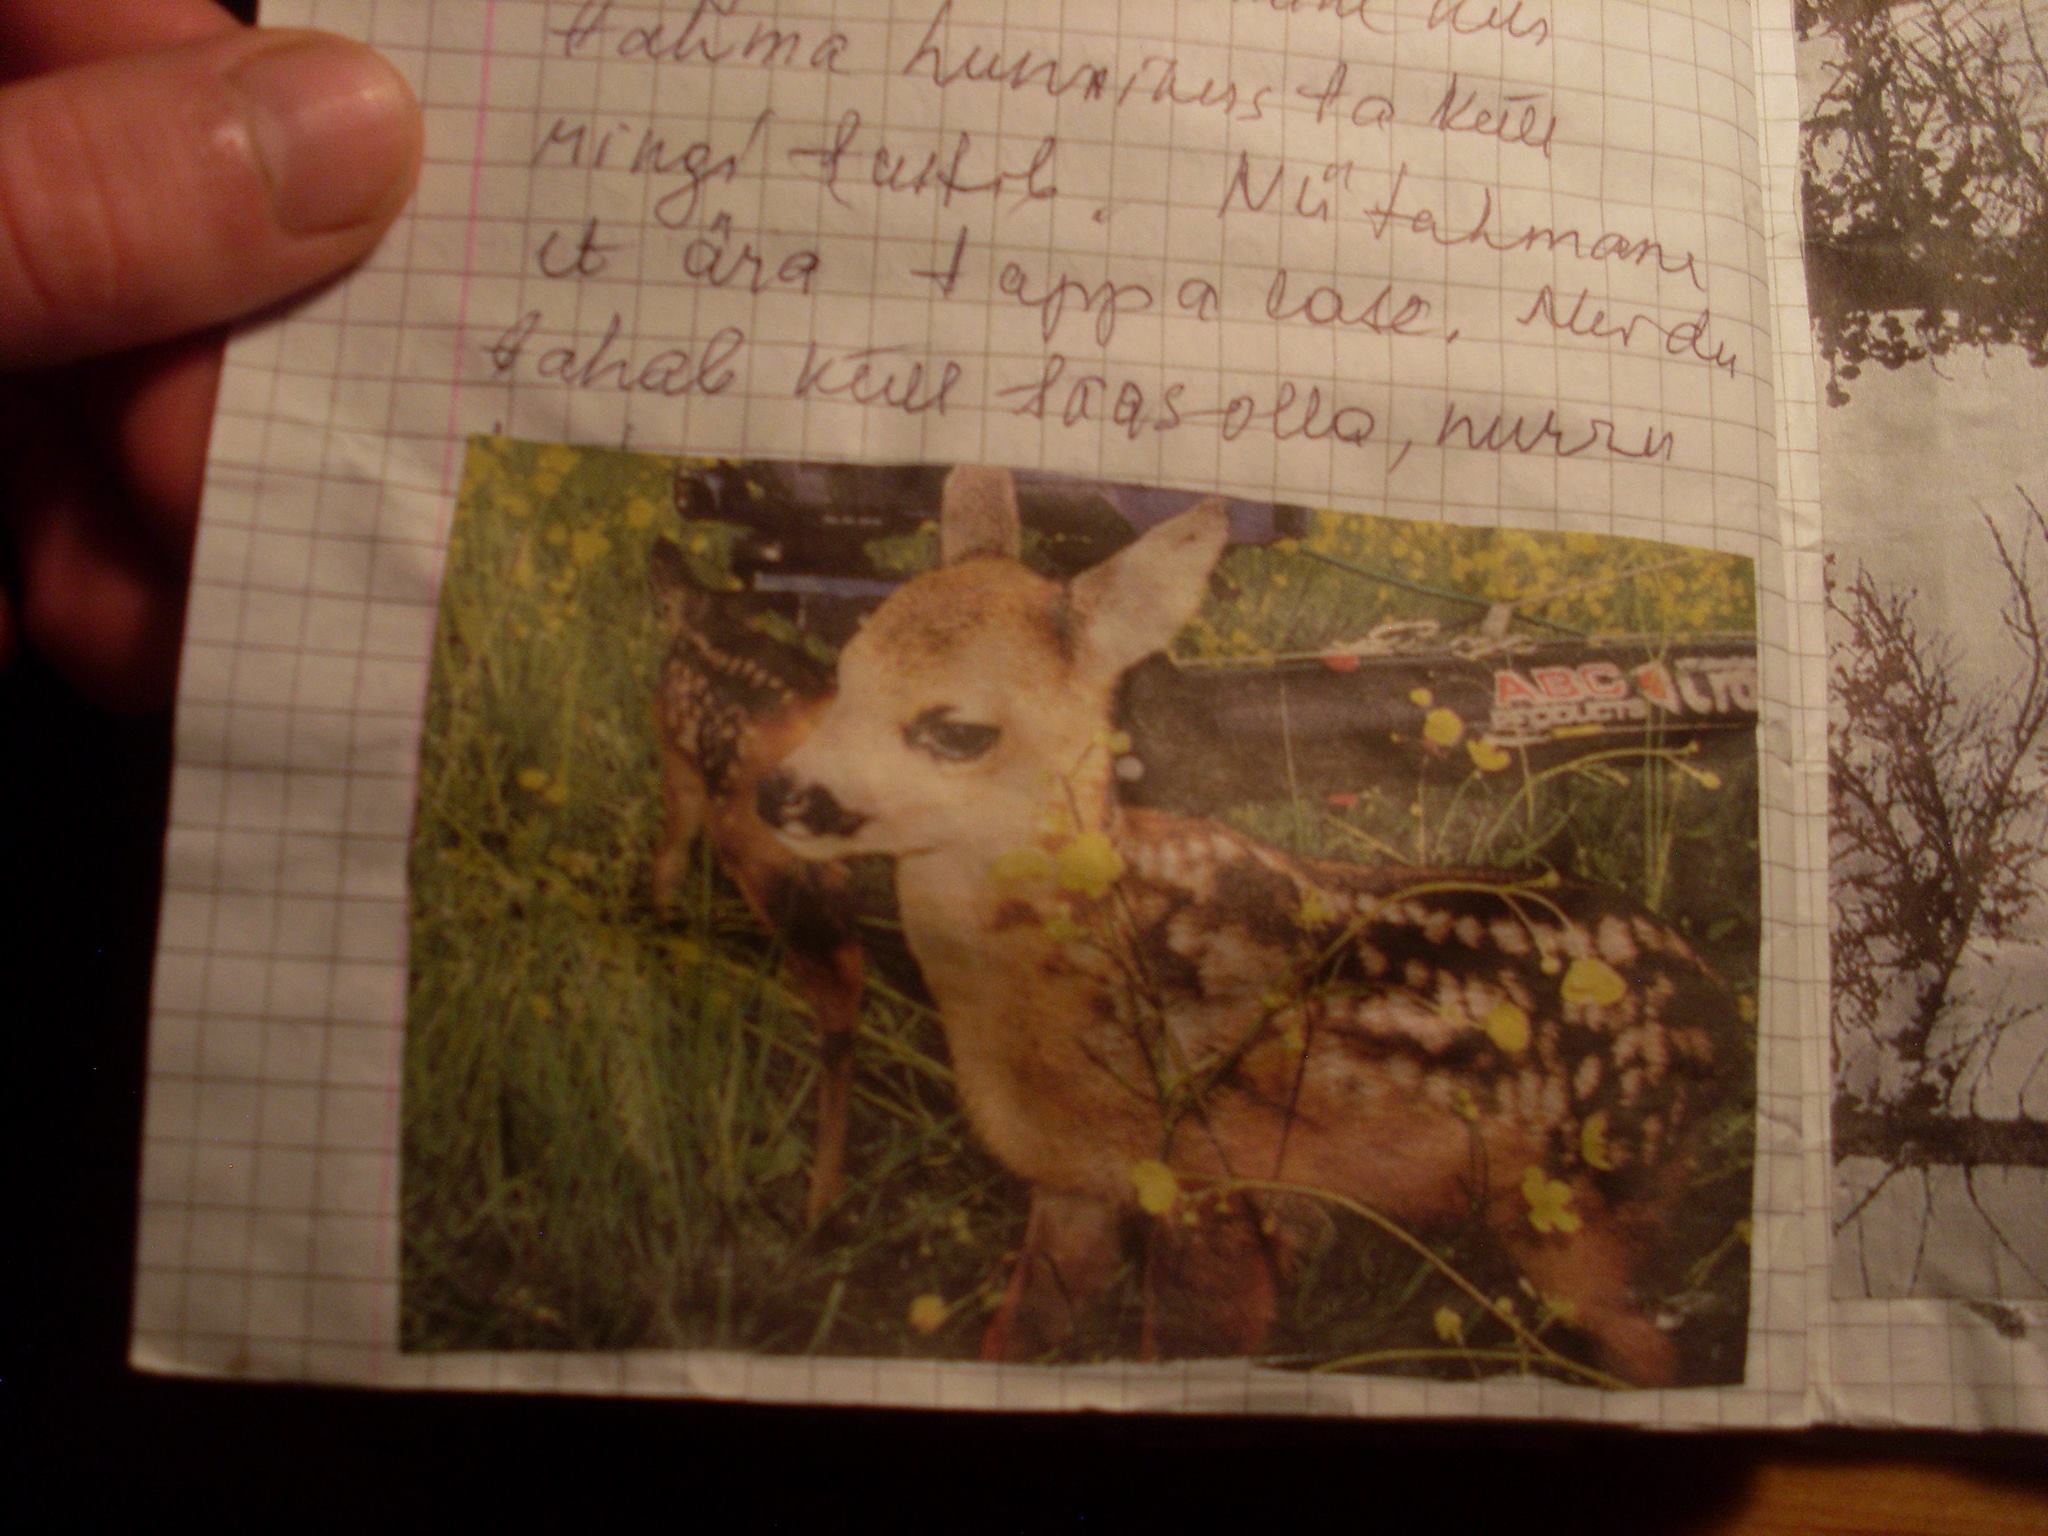 tahma hunnikuss ta küll
mingi tursib. Nü tahmane
et ära tappa lase. Nurdu
tahab küll säas olla, nurru
ABC
PRODUCTS